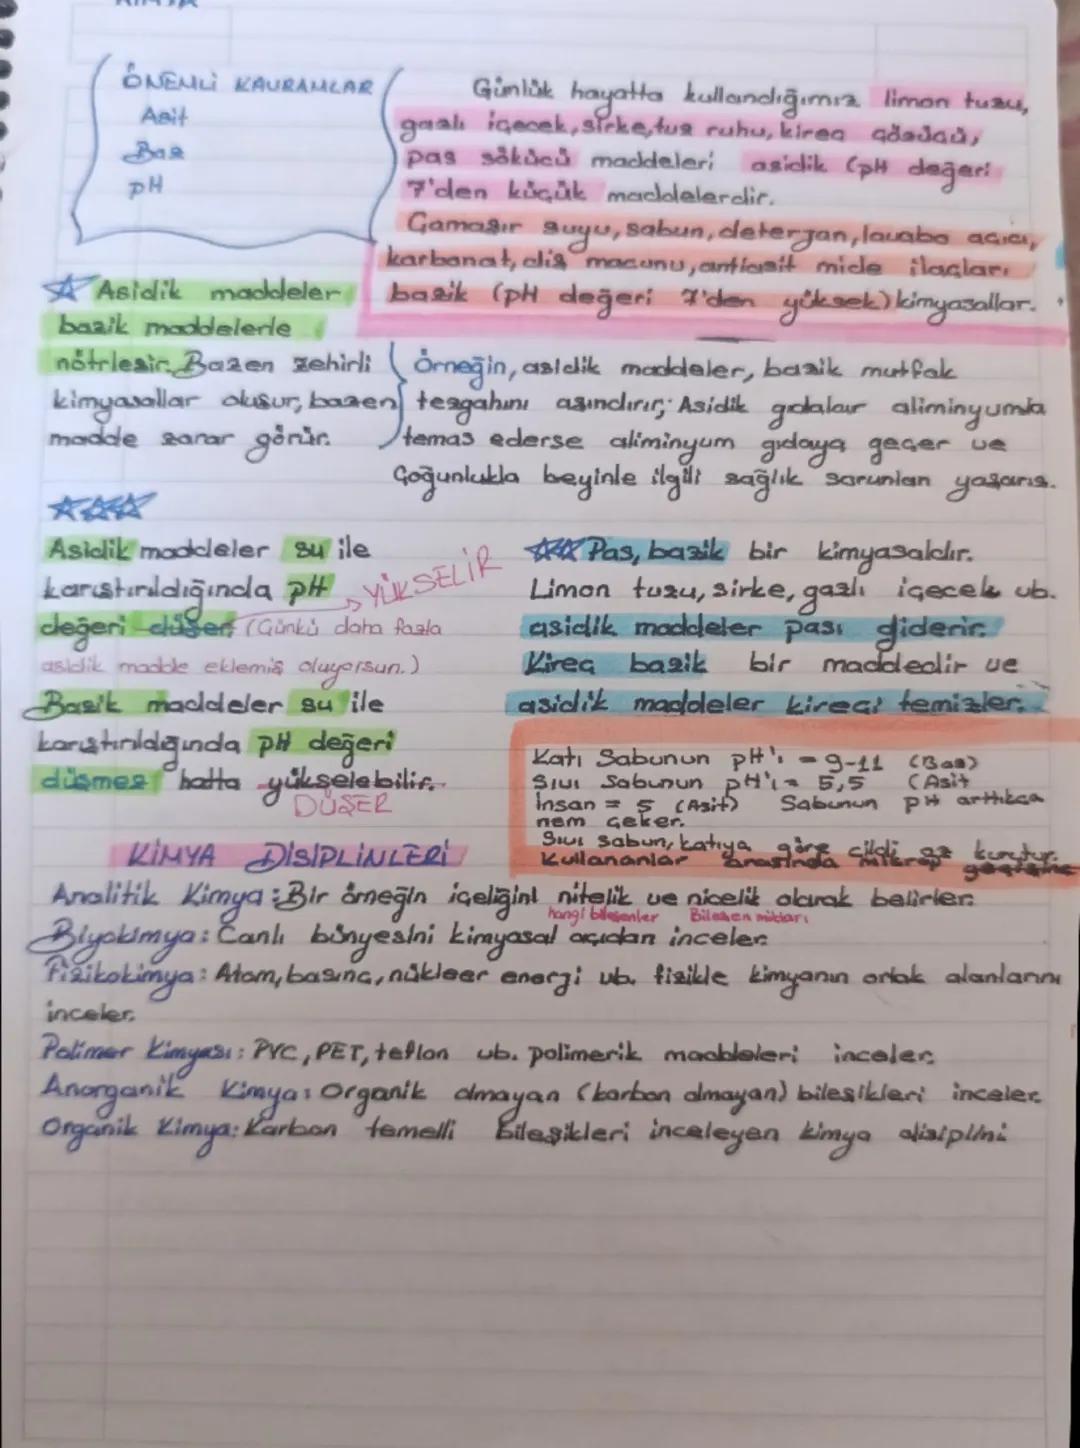 ÖNEMLİ KAVRAMLAR
Asit
Baz
pH
Günlük hayatta kullandığımız limon tuzu,
gazlı içecek, sirke, tuz ruhu, kireç çözücü,
pas sökücü maddeleri asidik (pH değeri
7'den küçük maddelerdir.
Çamaşır suyu, sabun, deterjan, lavabo açıcı,
karbonat, diş macunu, antiasit mide ilaçları
bazik (pH değeri 7'den yüksek) kimyasallar.
Asidik maddeler
bazik maddelerle
nötrleşir. Bazen zehirli
kimyasallar oluşur, bazen
madde zarar görür.
Örneğin, asidik maddeler, bazik mutfak
tezgahını aşındırır; Asidik gıdalar aliminyumla
temas ederse aliminyum gıdaya geçer ve
Çoğunlukla beyinle ilgili sağlık sorunları yaşarız.
Asidik maddeler su ile
karıştırıldığında pH YÜKSELİR
değeri düşer. (Çünkü daha fazla
asidik madde eklemiş oluyorsun.)
Bazik maddeler su ile
karıştırıldığında pH değeri
düşmez hatta yükselebilir.
DÜŞER
Pas, bazik bir kimyasaldır.
Limon tuzu, sirke, gazlı içecek vb.
asidik maddeler pası giderir.
Kireç bazik bir maddedir ve
asidik maddeler kireci temizler.
Katı Sabunun pH'ı = 9-11 (Baz)
Sıvı Sabunun pH'ı = 5,5 (Asit
İnsan = 5 (Asit) Sabunun pH arttıkça
nem çeker.
Sıvı sabun, katıya göre cildi az kurutur.
Kullananlar arasında mikrop
KİMYA DİSİPLİNLERİ
Analitik Kimya: Bir örneğin içeliğini nitelik ve nicelik olarak belirler.
hangi bileşenler Bileşen miktarı
Biyokimya: Canlı bünyesini kimyasal açıdan inceler.
Fizikokimya: Atom, basınç, nükleer enerji vb. fizikle kimyanın ortak alanlarını
inceler.
Polimer Kimyası: PVC, PET, teflon vb. polimerik maddeleri inceler.
Anorganik Kimya: Organik olmayan (karbon olmayan) bileşikleri inceler.
Organik Kimya: Karbon temelli bileşikleri inceleyen kimya disiplini